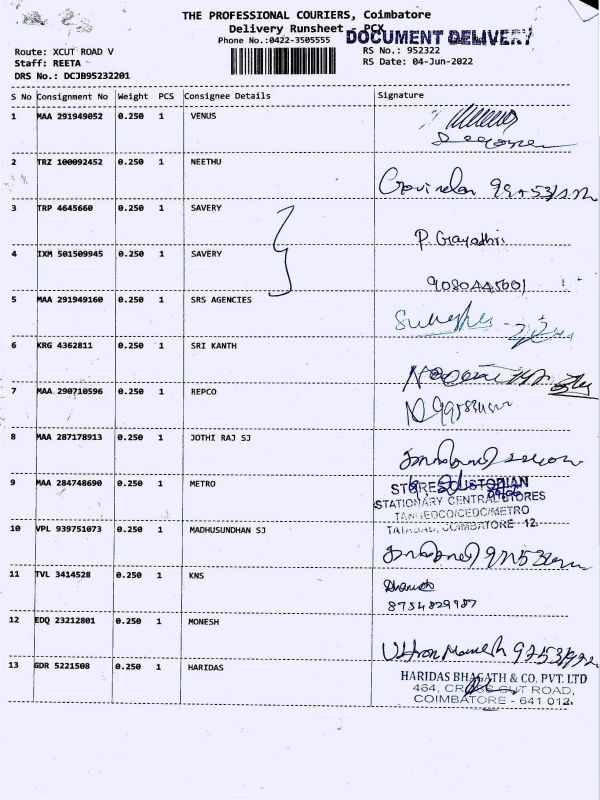 THE PROFESSIONAL COURIERS, Coimbatore
Delivery Runsheet - PCX
DOCUMENT DELIVERY
Phone No.:0422-3505555
Route: XCUT ROAD V
RS No.: 952322
Staff: REETA
RS Date: 04-Jun-2022
DRS No.: DCJB95232201
S No Consignment No Weight PCS Consignee Details Signature
1 MAA 291949052 0.250 1 VENUS
2 TRZ 100092452 0.250 1 NEETHU
3 TRP 4645660 0.250 1 SAVERY
P. Gayathri
4 IXM 501509945 0.250 1 SAVERY
9080445601
5 MAA 291949160 0.250 1 SRS AGENCIES
6 KRG 4362811 0.250 1 SRI KANTH
7 MAA 290710596 0.250 1 REPCO
8 MAA 287178913 0.250 1 JOTHI RAJ SJ
9 MAA 284748690 0.250 1 METRO
STORES CUSTODIAN
STATIONARY CENTRAL STORES
TANGEDCO/CEDC/METRO
TATABAD, COIMBATORE - 12.
10 VPL 939751073 0.250 1 MADHUSUNDHAN SJ
11 TVL 3414528 0.250 1 KNS
8754829987
12 EDQ 23212801 0.250 1 MONESH
13 GDR 5221508 0.250 1 HARIDAS
HARIDAS BHAGATH & CO. PVT. LTD
464, CROSS CUT ROAD,
COIMBATORE - 641 012.